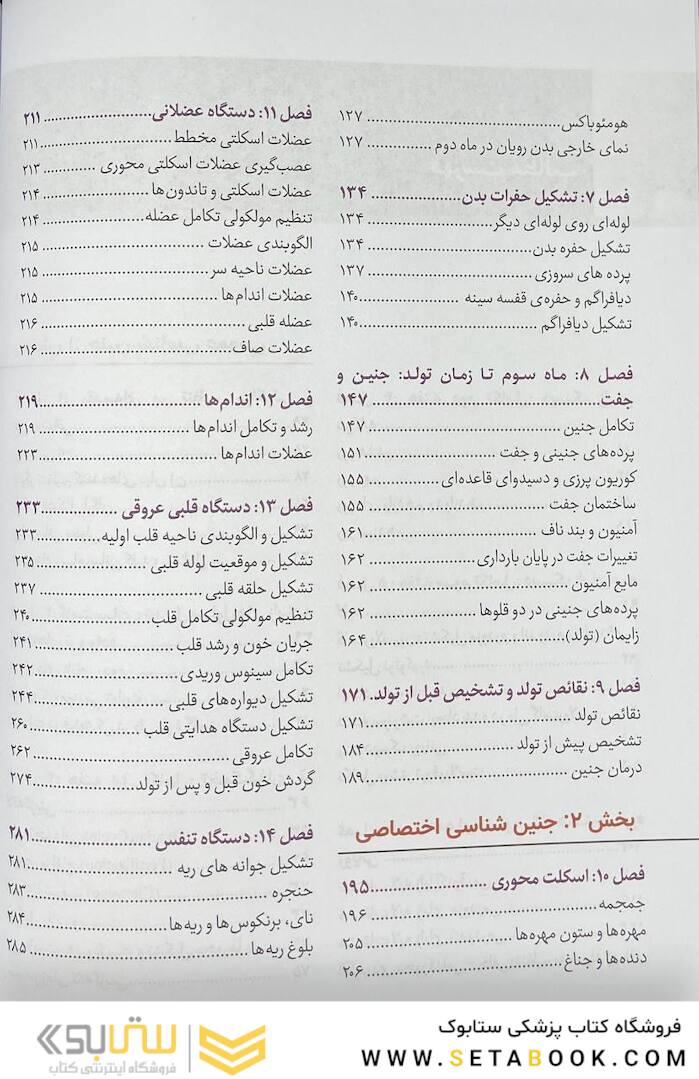 هومئوباکس ۱۲۷
نمای خارجی بدن رویان در ماه دوم ۱۲۷
فصل ۷: تشکیل حفرات بدن ۱۳۴
لوله‌ای روی لوله‌ای دیگر ۱۳۴
تشکیل حفره بدن ۱۳۴
پرده های سروزی ۱۳۷
دیافراگم و حفره‌ی قفسه سینه ۱۴۰
تشکیل دیافراگم ۱۴۰
فصل ۸: ماه سوم تا زمان تولد: جنین و
جفت ۱۴۷
تکامل جنین ۱۴۷
پرده‌های جنینی و جفت ۱۵۱
کوریون پرزی و دسیدوای قاعده‌ای ۱۵۵
ساختمان جفت ۱۵۵
آمنیون و بند ناف ۱۶۱
تغییرات جفت در پایان بارداری ۱۶۲
مایع آمنیون ۱۶۲
پرده‌های جنینی در دو قلوها ۱۶۲
زایمان (تولد) ۱۶۴
فصل ۹: نقائص تولد و تشخیص قبل از تولد. ۱۷۱
نقائص تولد ۱۷۱
تشخیص پیش از تولد ۱۸۴
درمان جنین ۱۸۹
بخش ۲: جنین شناسی اختصاصی
فصل ۱۰: اسکلت محوری ۱۹۵
جمجمه ۱۹۶
مهره‌ها و ستون مهره‌ها ۲۰۵
دنده‌ها و جناغ ۲۰۶
فصل ۱۱: دستگاه عضلانی ۲۱۱
عضلات اسکلتی مخطط ۲۱۱
عصب‌گیری عضلات اسکلتی محوری ۲۱۳
عضلات اسکلتی و تاندون‌ها ۲۱۴
تنظیم مولکولی تکامل عضله ۲۱۴
الگوبندی عضلات ۲۱۵
عضلات ناحیه سر ۲۱۵
عضلات اندام‌ها ۲۱۵
عضله قلبی ۲۱۶
عضلات صاف ۲۱۶
فصل ۱۲: اندام‌ها ۲۱۹
رشد و تکامل اندام‌ها ۲۱۹
عضلات اندام‌ها ۲۲۳
فصل ۱۳: دستگاه قلبی عروقی ۲۳۳
تشکیل و الگوبندی ناحیه قلب اولیه ۲۳۳
تشکیل و موقعیت لوله قلبی ۲۳۵
تشکیل حلقه قلبی ۲۳۷
تنظیم مولکولی تکامل قلب ۲۴۰
جریان خون و رشد قلب ۲۴۱
تکامل سینوس وریدی ۲۴۲
تشکیل دیواره‌های قلبی ۲۴۴
تشکیل دستگاه هدایتی قلب ۲۶۰
تکامل عروقی ۲۶۲
گردش خون قبل و پس از تولد ۲۷۴
فصل ۱۴: دستگاه تنفس ۲۸۱
تشکیل جوانه های ریه ۲۸۱
حنجره ۲۸۳
نای، برنکوس‌ها و ریه‌ها ۲۸۴
بلوغ ریه‌ها ۲۸۵
فروشگاه کتاب پزشکی ستابوک
WWW.SETABOOK.COM
ستابوک
فروشگاه اینترنتی کتاب